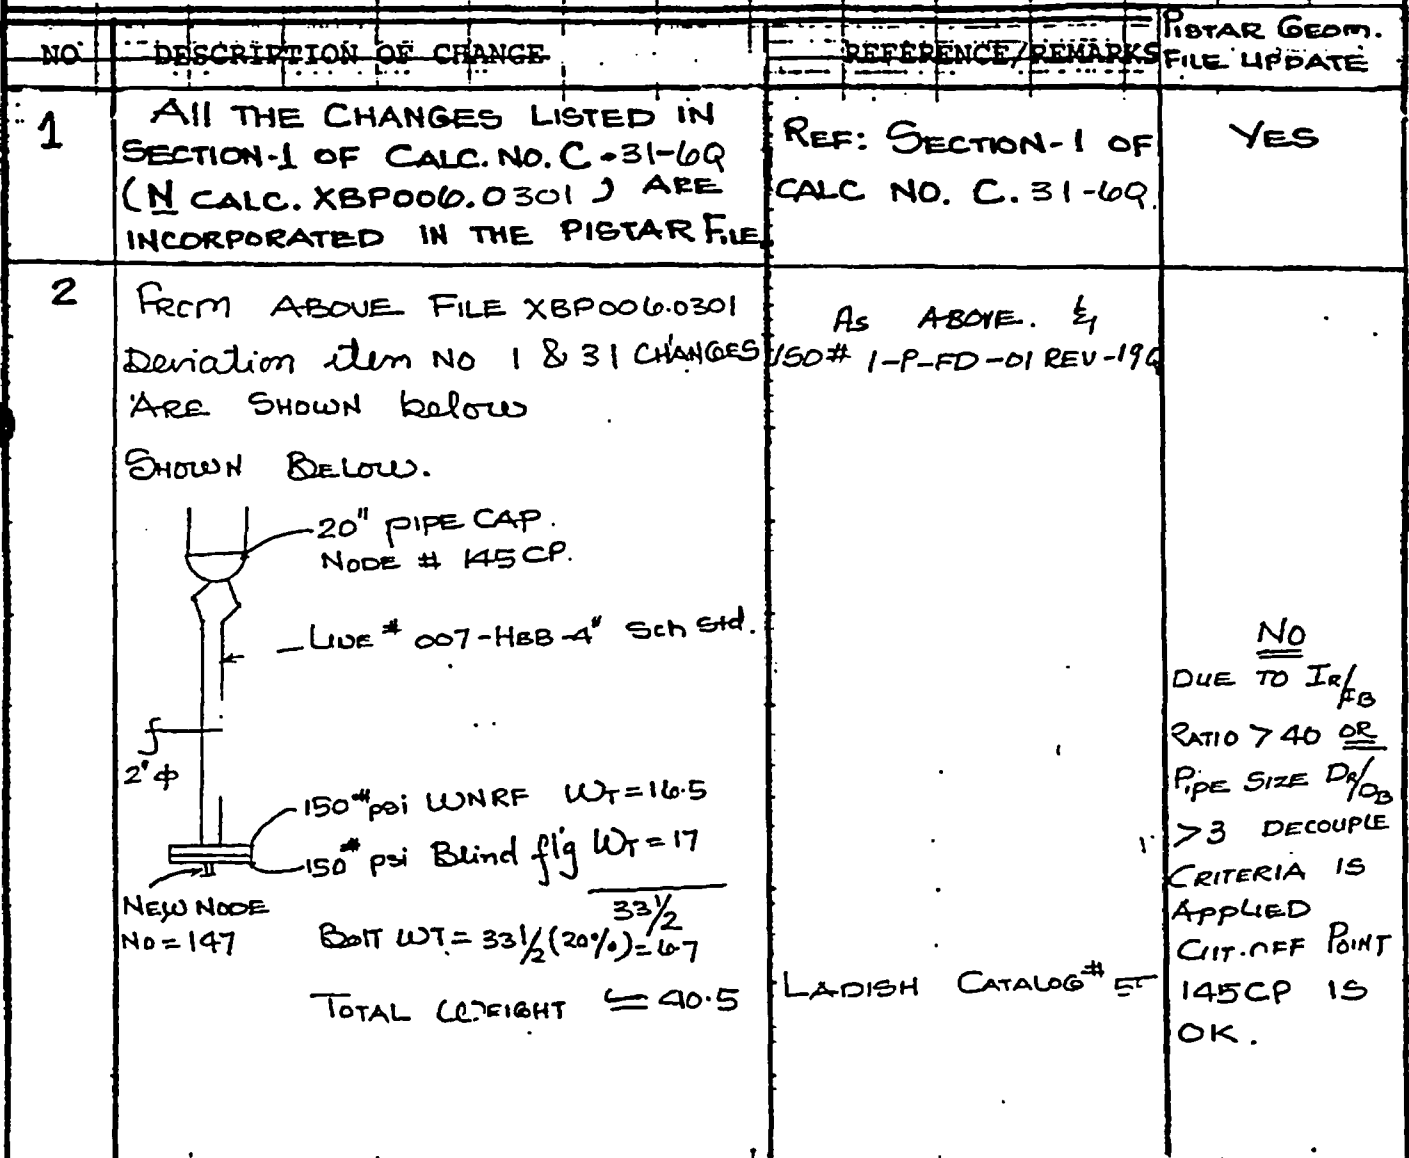 NO. DESCRIPTION OF CHANGE REFERENCE/REMARKS
PISTAR GEOM.
FILE UPDATE
1
All THE CHANGES LISTED IN
SECTION-1 OF CALC. NO. C-31-6Q
(N CALC. XBP006.0301) ARE
INCORPORATED IN THE PISTAR FILE
REF: SECTION-1 OF
CALC NO. C.31-6Q.
YES
2
FROM ABOVE FILE XBP006.0301
Deviation item NO 1 & 31 CHANGES
ARE SHOWN below
SHOWN BELOW.
20" PIPE CAP.
NODE # 145CP.
LINE # 007-HBB-4" Sch Std.
2"φ
150# psi WNRF WT=16.5
150# psi Blind flg WT=17
33½
NEW NODE
NO=147
BOLT WT=33½(20%)=6.7
TOTAL WEIGHT ≃40.5
AS ABOVE. &
ISO# 1-P-FD-01 REV-19Q
LADISH CATALOG #
NO
DUE TO IR/IB
RATIO >40 OR
PIPE SIZE DR/DB
>3 DECOUPLE
CRITERIA IS
APPLIED
CUT-OFF POINT
145CP IS
OK.